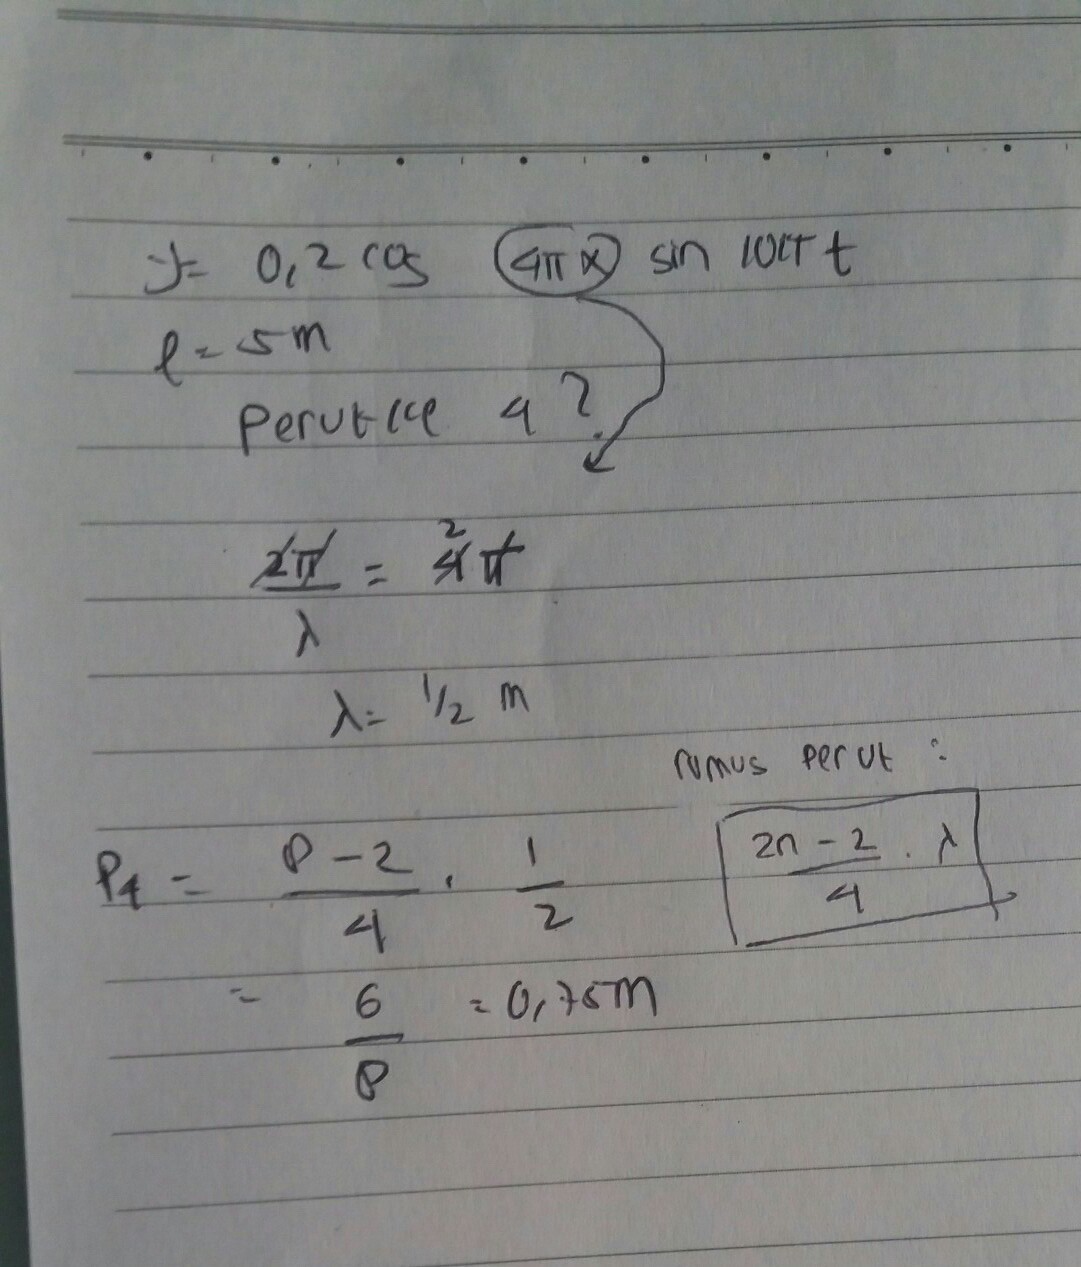 y= 0,2 cos (4πx) sin 10π t
l = 5m
Perut ke 4 ?
2π/λ = 4π 2
λ= 1/2 m
rumus perut :
P4 = 8-2/4 . 1/2
2n-2/4 . λ
= 6/8 = 0,75m